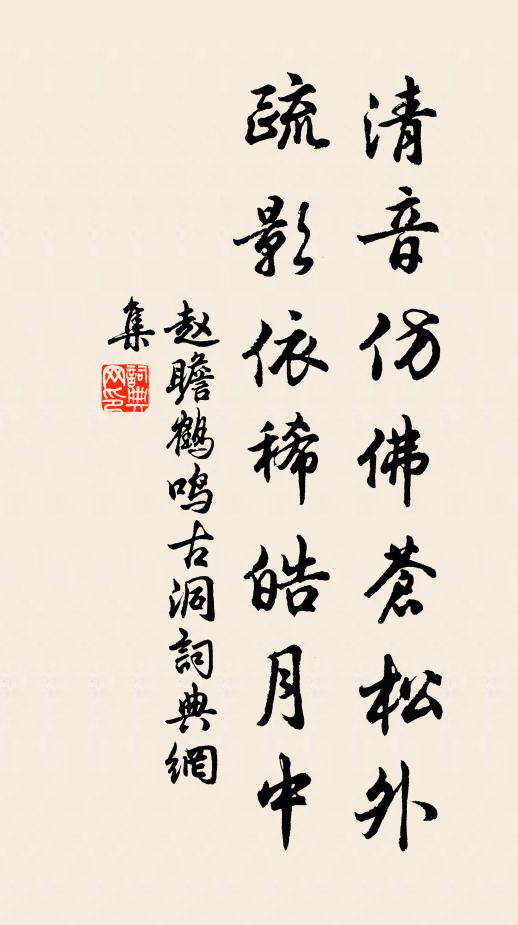 清音仿佛蒼松外
疏影依稀皓月中
赵瞻鶴鸣古洞詞典網
集
詞典
网印